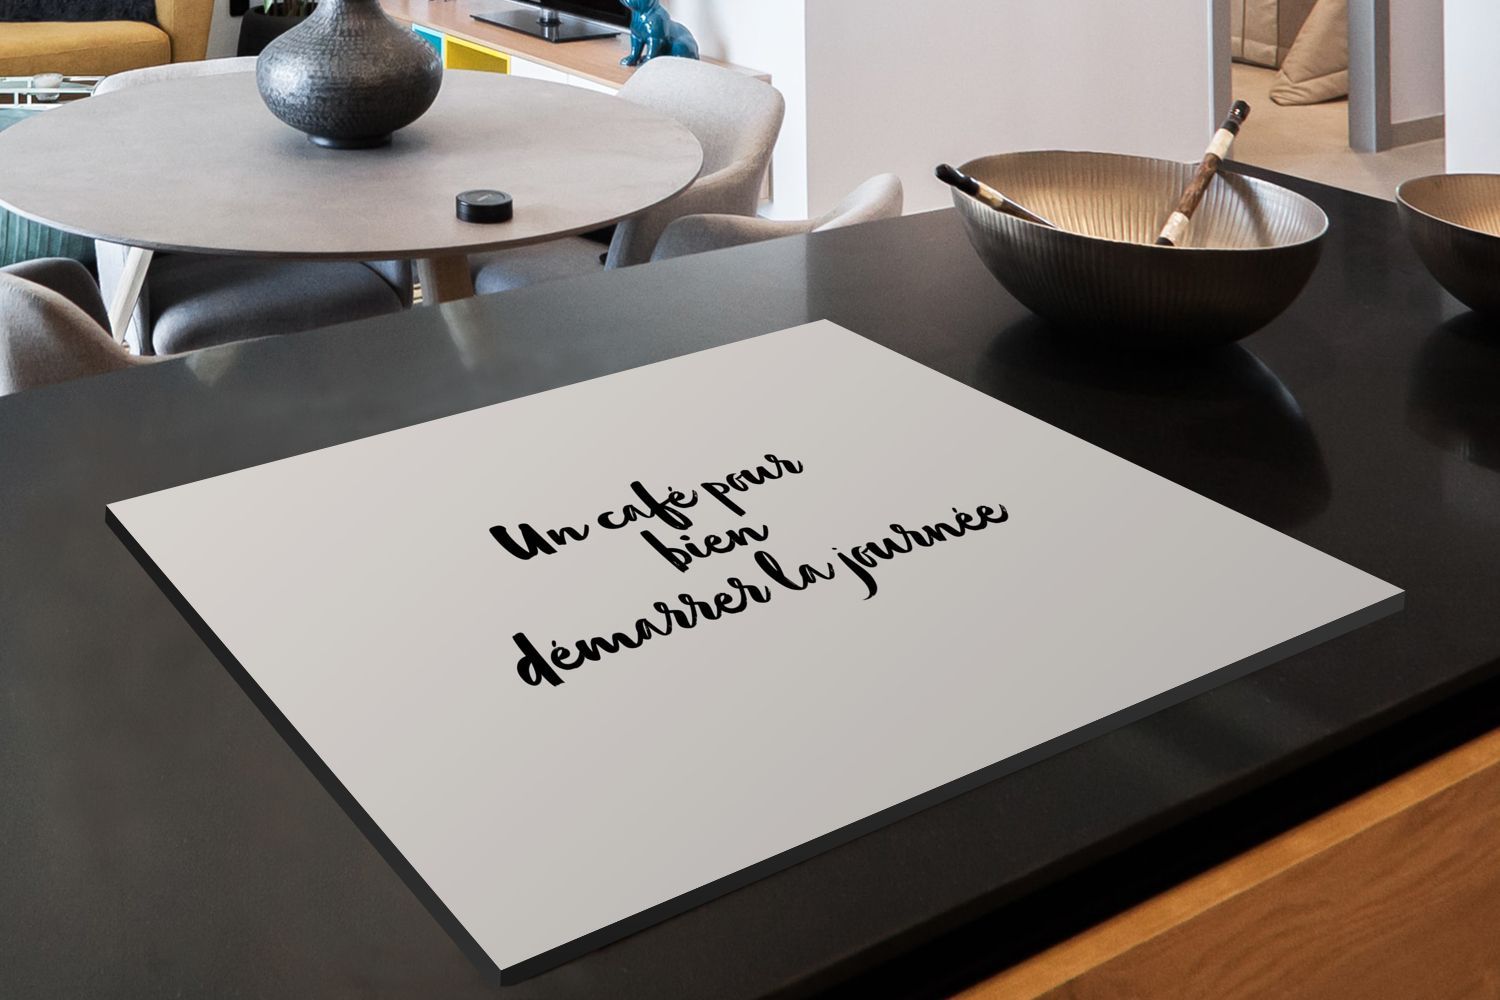 Un café pour
bien
démarrer la journée